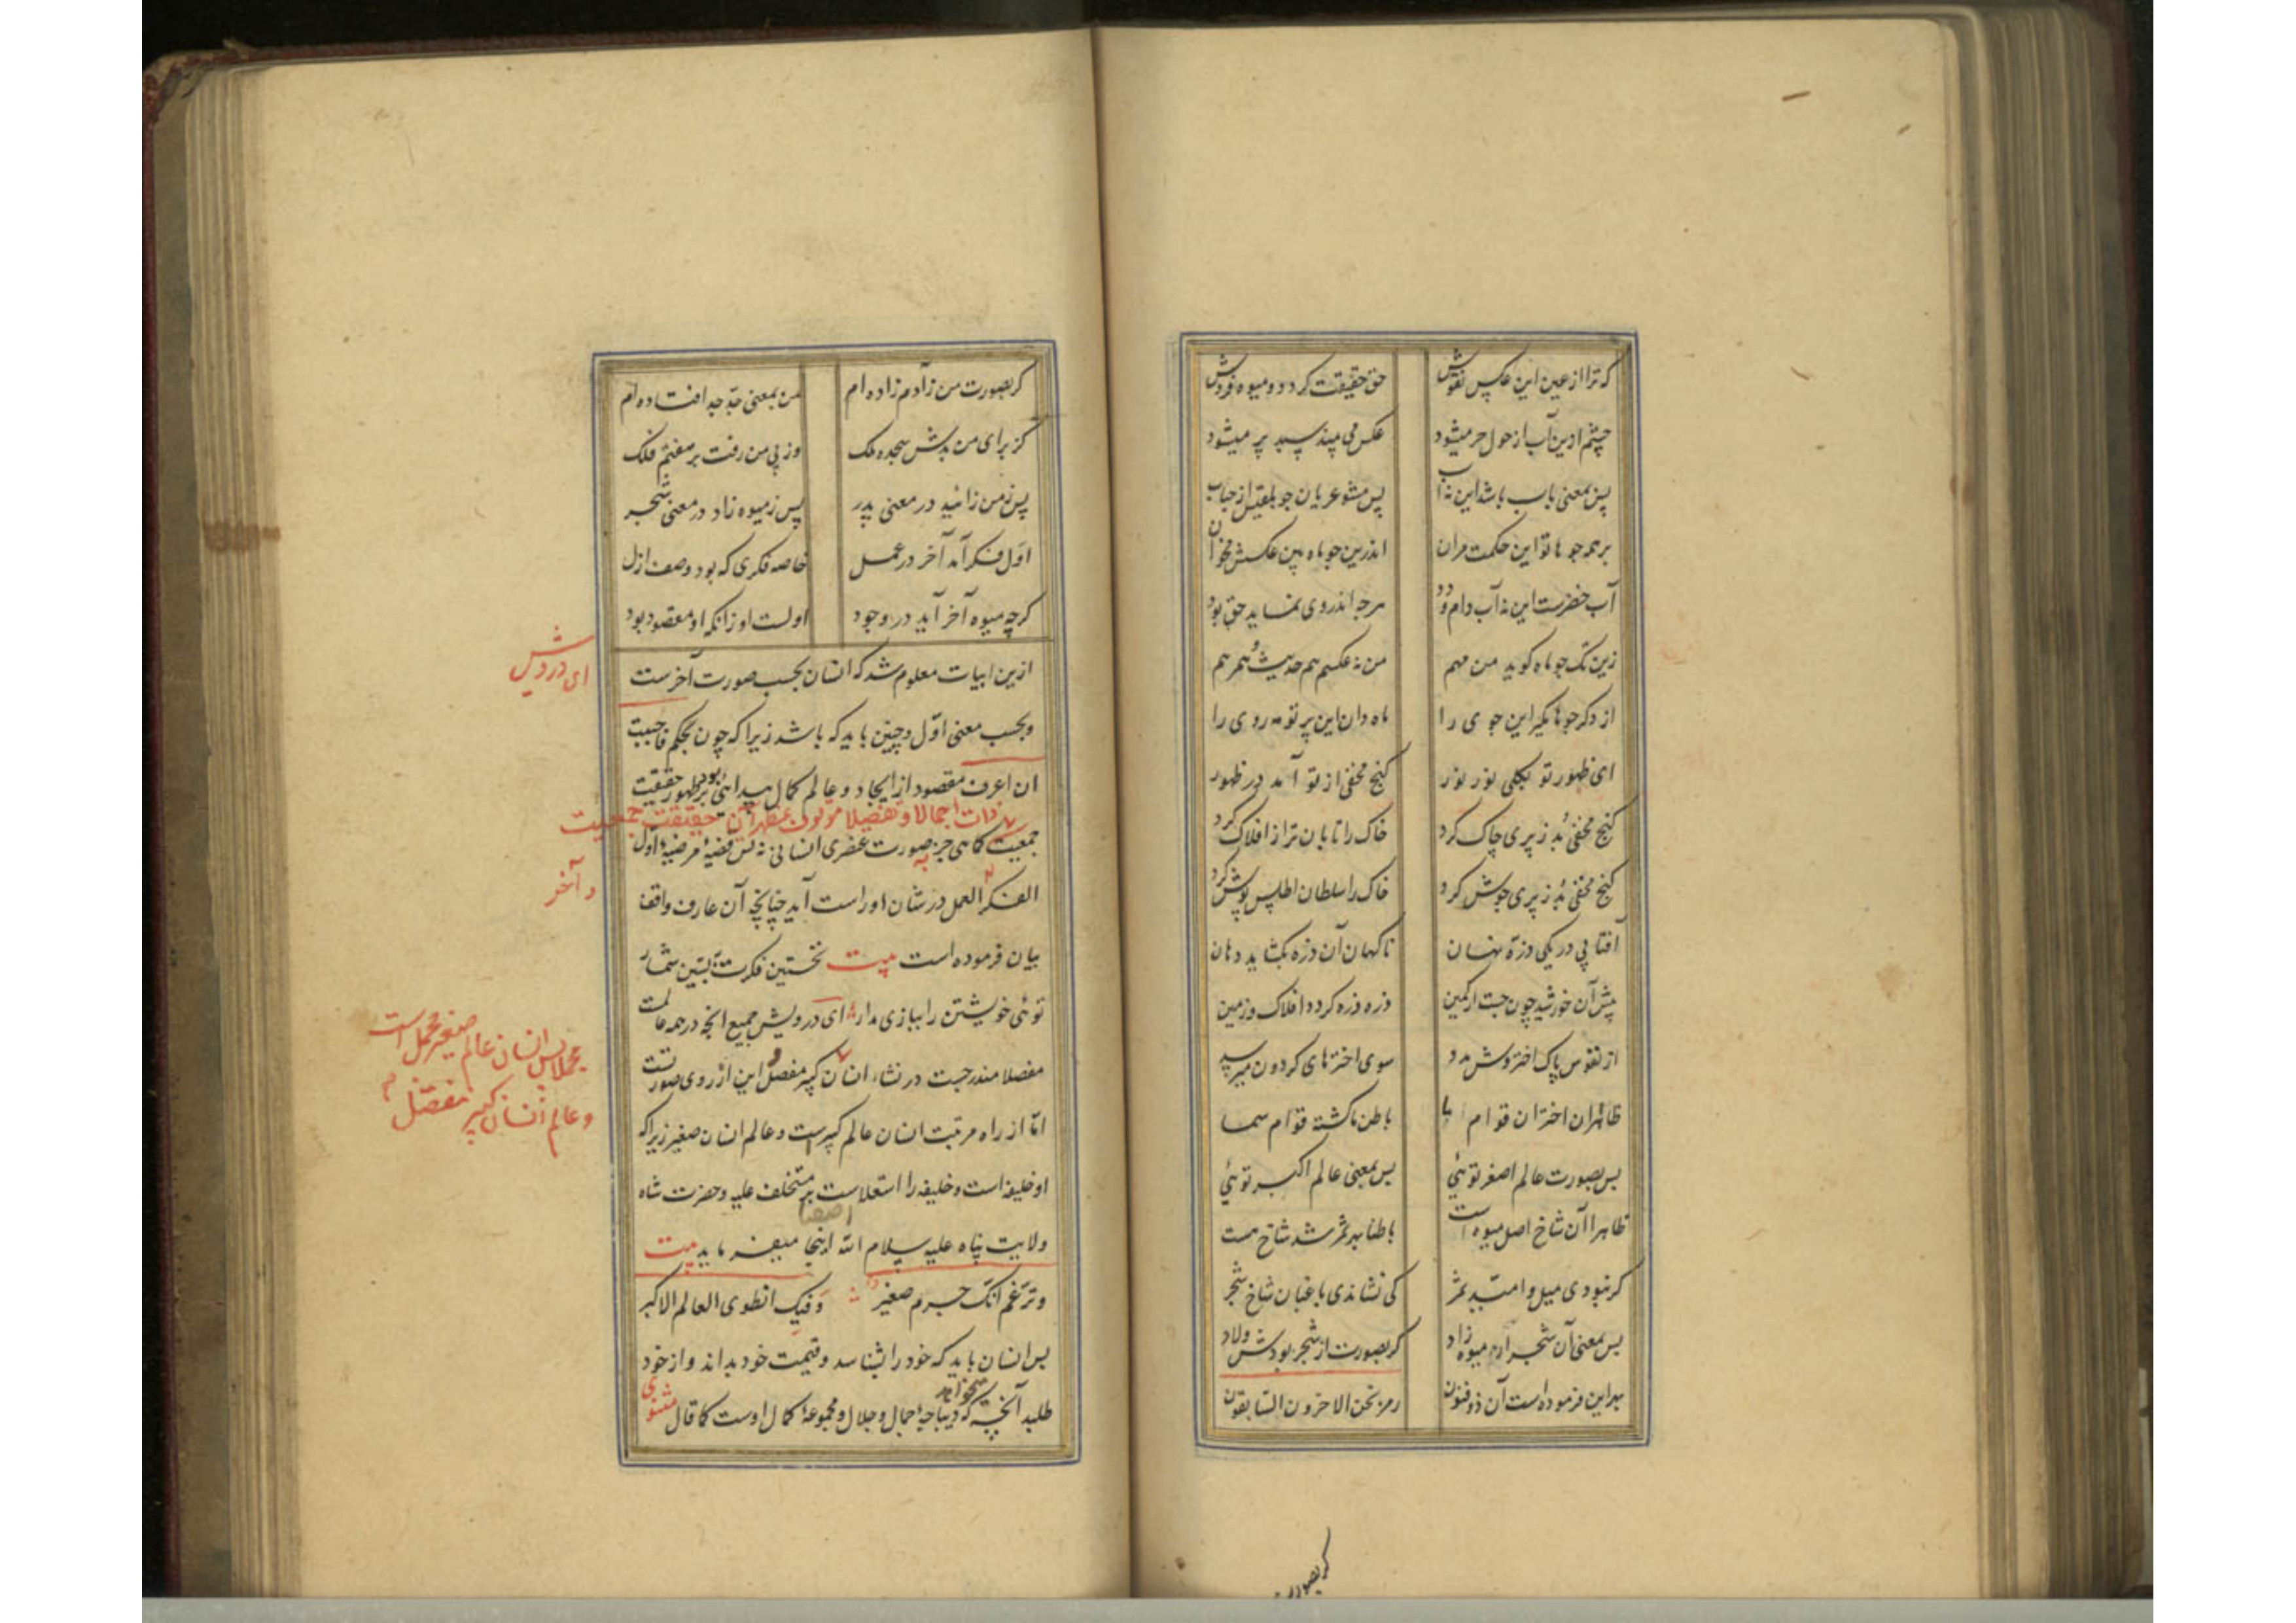 که ترا از عین این عکس نقوش حق حقیقت کردد و میوه فروش
چشم ازین آب از حول حر میشود عکس می بیند سبد پر میشود
پس بمعنی باب باشد این نه آب پس مشو عریان جو بلقیس از حباب
بر همه جوها تو این حکمت مران اندرین جو ماه بین عکسش مخوان
آب خضرست این نه آب دام و دد هرچه اندر وی نماید حق بود
زین تک جو ماه کوید من مهم من نه عکسم هم حدیث و همرهم
از دکر جوها مکیر این جوی را ماه دان این پرتو مه روی را
ای ظهور تو بکلی نور نور کنج مخفی از تو آمد در ظهور
کنج مخفی بد ز پری چاک کرد خاک را تابان تر از افلاک کرد
کنج مخفی بد ز پری جوش کرد خاک را سلطان اطلس پوش کرد
آفتابی در یکی ذره نهان ناکهان آن ذره بکشاید دهان
ذره ذره کردد افلاک و زمین پیش آن خورشید چون جست از کمین
از نفوس پاک اختروش مدد سوی اخترهای کردون میرسد
ظاهر آن اختران قوام ما باطن ما کشته قوام سما
پس بصورت عالم اصغر توئی پس بمعنی عالم اکبر توئی
ظاهرا آن شاخ اصل میوه است باطنا بهر ثمر شد شاخ هست
کر نبودی میل و امید ثمر کی نشاندی باغبان شاخ شجر
پس بمعنی آن شجر از میوه زاد کر بصورت از شجر بودش ولاد
بهر این فرموده است آن ذو فنون رمز نحن الاخرون السابقون
کر بصورت
کر بصورت من ز آدم زاده ام من بمعنی جد جد افتاده ام
کز برای من بدش سجده ملک وز پی من رفت بر هفتم فلک
پس ز من زائید در معنی پدر پس ز میوه زاد در معنی شجر
اول فکر آمد آخر در عمل خاصه فکری که بود وصف ازل
کرچه میوه آخر آید در وجود اولست او زانکه او مقصود بود
ازین ابیات معلوم شد که انسان بحسب صورت آخرست
ای درویش
و بحسب معنی اول و چنین باید که باشد زیرا که چون بحکم فاحببت
ان اعرف مقصود از ایجاد و عالم کمال پیدائی بود بر ظهور حقیقت
ذات اجمالا و تفصیلا موقوف مظهر آن حقیقت جمعیت
جمعیت کاهی جز صورت عنصری انسانی نه پس قضیهٔ مرضیهٔ اول
الفکر العمل در شان او راست آید چنانچه آن عارف واقف
و آخر
بیان فرموده است بیت نخستین فکرت پسین شمار
توئی خویشتن را ببازی مدار ای درویش جمیع انچه در همه عالمست
مفصلا مندرجست در نشاء انسان کبیر مفصل این از روی صورتست
مجملا پس انسان عالم صغیر مجمل است
و عالم انسان کبیر مفصل
اما از راه مرتبت انسان عالم کبیرست و عالم انسان صغیر زیرا که
او خلیفه است و خلیفه را استعلاست بر متخلف علیه و حضرت شاه
ولایت پناه علیه سلام الله اینجا میفرماید بیت
و تزعم انک جرم صغیر و فیک انطوی العالم الاکبر
پس انسان باید که خود را بشناسد و قیمت خود بداند و از خود
طلبد آنچه میخواهد که دیباجهٔ جمال و جلال و مجموعهٔ کمال اوست کما قال مثنوی